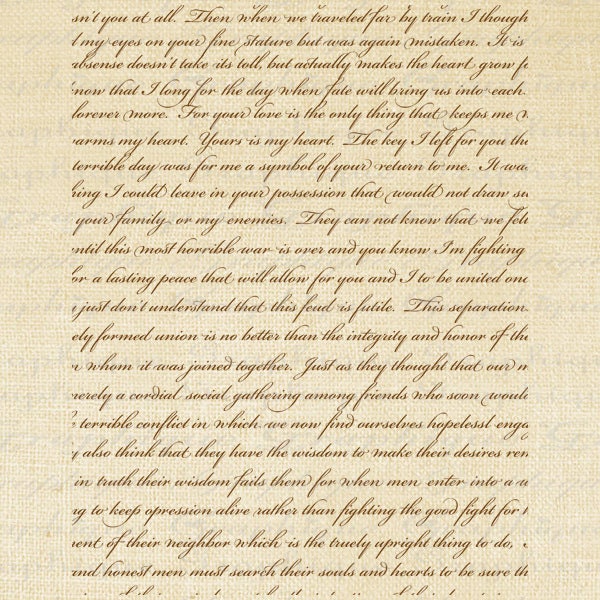 sn't you at all. Then when we traveled far by train I though
d my eyes on your fine stature but was again mistaken. It is
absense doesn't take its toll, but actually makes the heart grow fo
now that I long for the day when fate will bring us into each
forever more. For your love is the only thing that keeps me
arms my heart. Yours is my heart. The key I left for you th
terrible day was for me a symbol of your return to me. It wa
ing I could leave in your possession that would not draw su
your family or my enemies. They can not know that we felt
ntil this most horrible war is over and you know I'm fighting
or a lasting peace that will allow for you and I to be united onc
just don't understand that this feud is futile. This separation
ely formed union is no better than the integrity and honor of th
whom it was joined together. Just as they thought that our
merely a cordial social gathering among friends who soon would
terrible conflict in which we now find ourselves hopelessl enga
y also think that they have the wisdom to make their desires ren
in truth their wisdom fails them for when men enter into a
ng to keep opression alive rather than fighting the good fight for
ent of their neighbor which is the truely upright thing to do,
and honest men must search their souls and hearts to be sure th